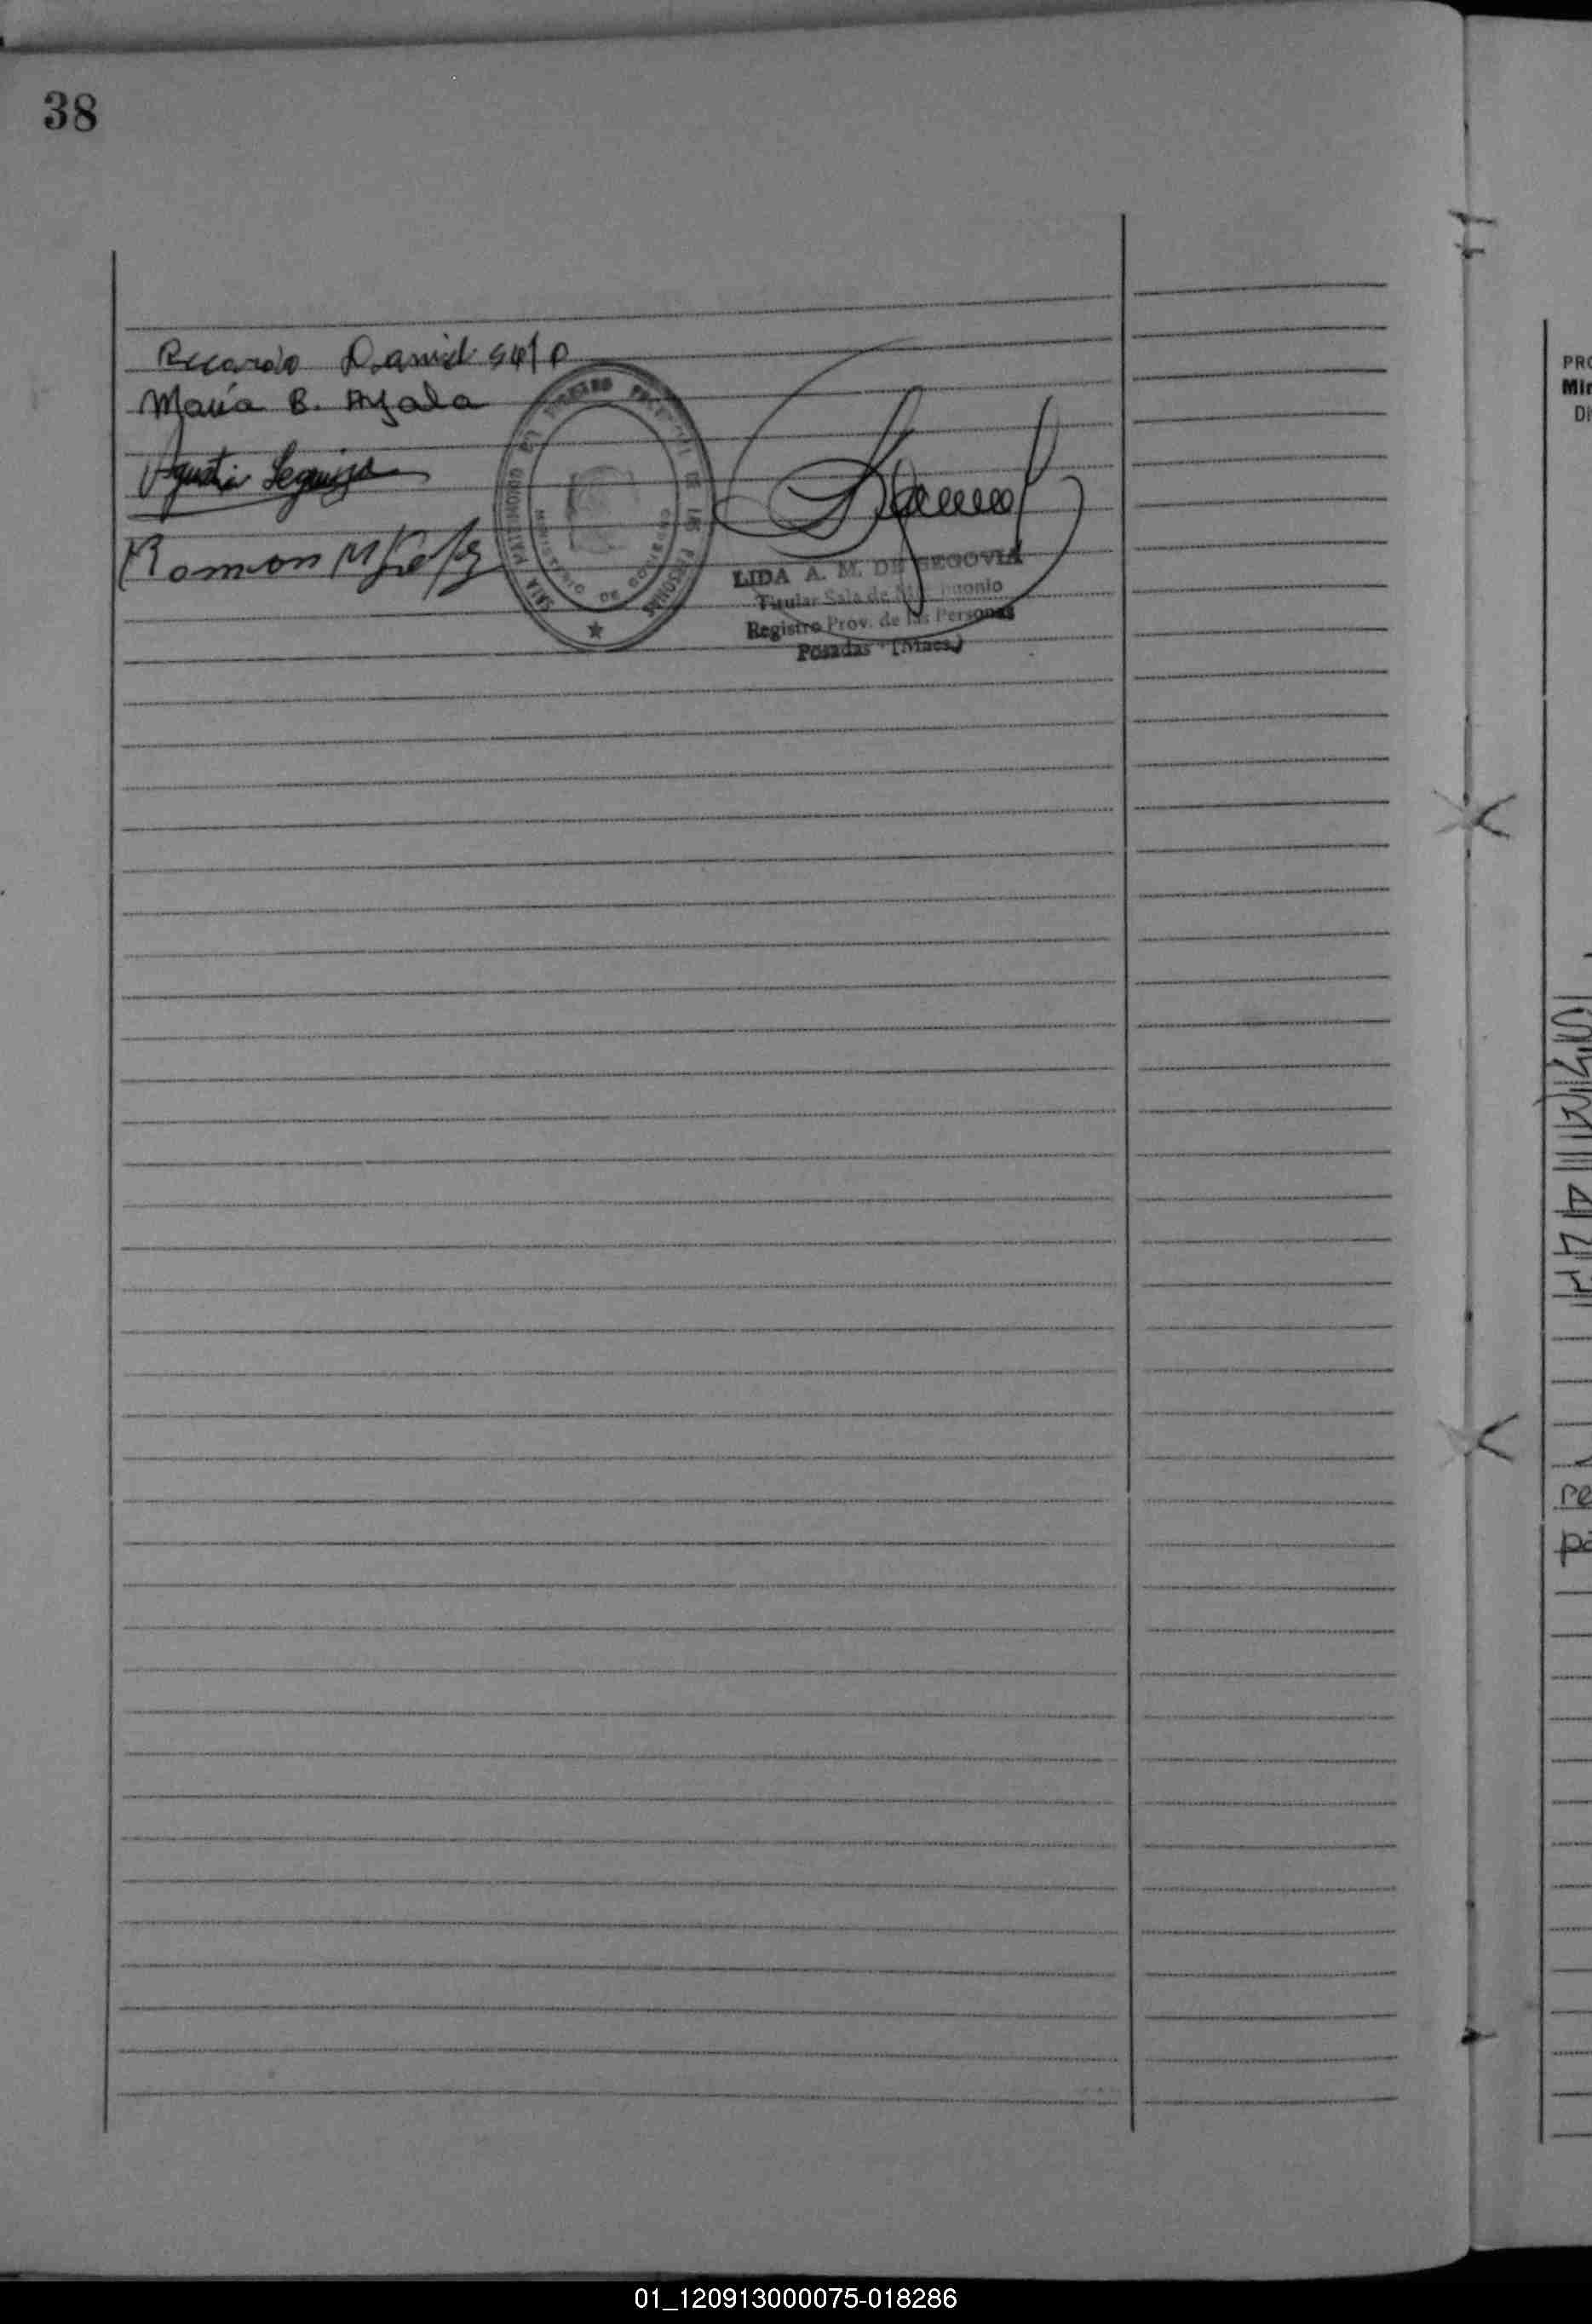 38
Ricardo Daniel
María B. Ayala
Agustin Seguinza
Ramon
SALA MATRIMONIO DEL REGISTRO PROVINCIAL DE LAS PERSONAS
MINISTERIO DE GOBIERNO
LIDA A. M. DE SEGOVIA
Titular Sala de Matrimonio
Registro Prov. de las Personas
Posadas (Mnes.)
PRO
Min
Di
re
pa
01_120913000075-018286